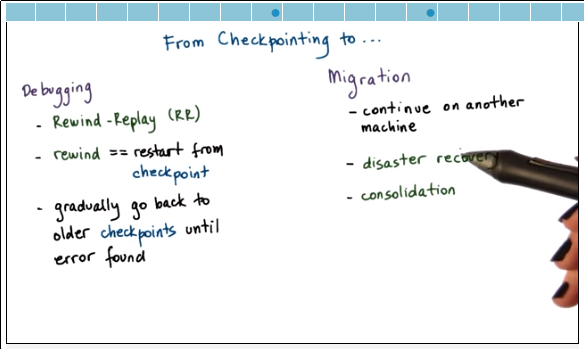 From Checkpointing to ...
Debugging
- Rewind-Replay (RR)
- rewind == restart from
checkpoint
- gradually go back to
older checkpoints until
error found
Migration
- continue on another
machine
- disaster recovery
- consolidation